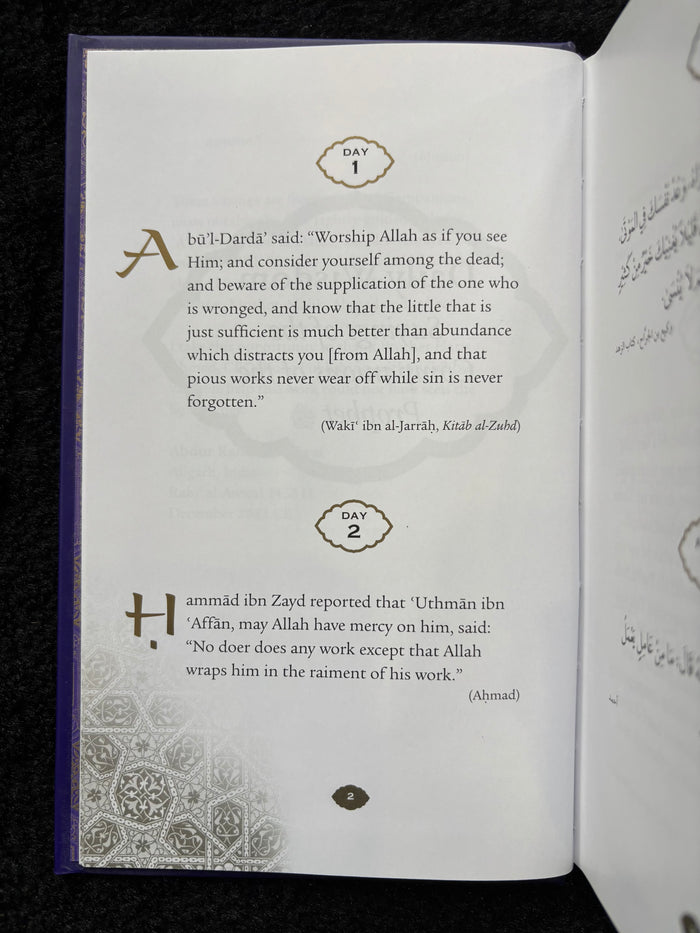 DAY
1
Abū’l-Dardā’ said: “Worship Allah as if you see
Him; and consider yourself among the dead;
and beware of the supplication of the one who
is wronged, and know that the little that is
just sufficient is much better than abundance
which distracts you [from Allah], and that
pious works never wear off while sin is never
forgotten.”
(Wakīʿ ibn al-Jarrāḥ, Kitāb al-Zuhd)
DAY
2
Ḥammād ibn Zayd reported that ʿUthmān ibn
ʿAffān, may Allah have mercy on him, said:
“No doer does any work except that Allah
wraps him in the raiment of his work.”
(Aḥmad)
2